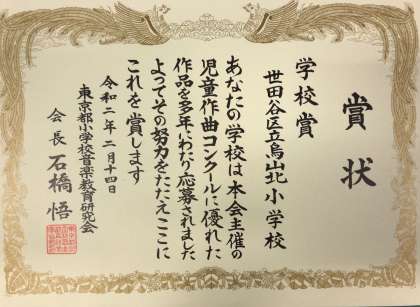 賞状
学校賞
世田谷区立烏山北小学校
あなたの学校は本会主催の
児童作曲コンクールに優れた
作品を多年にわたり応募されました
よってその努力をたたえここに
これを賞します
令和二年二月十四日
東京都小学校音楽教育研究会
会長 石橋 悟